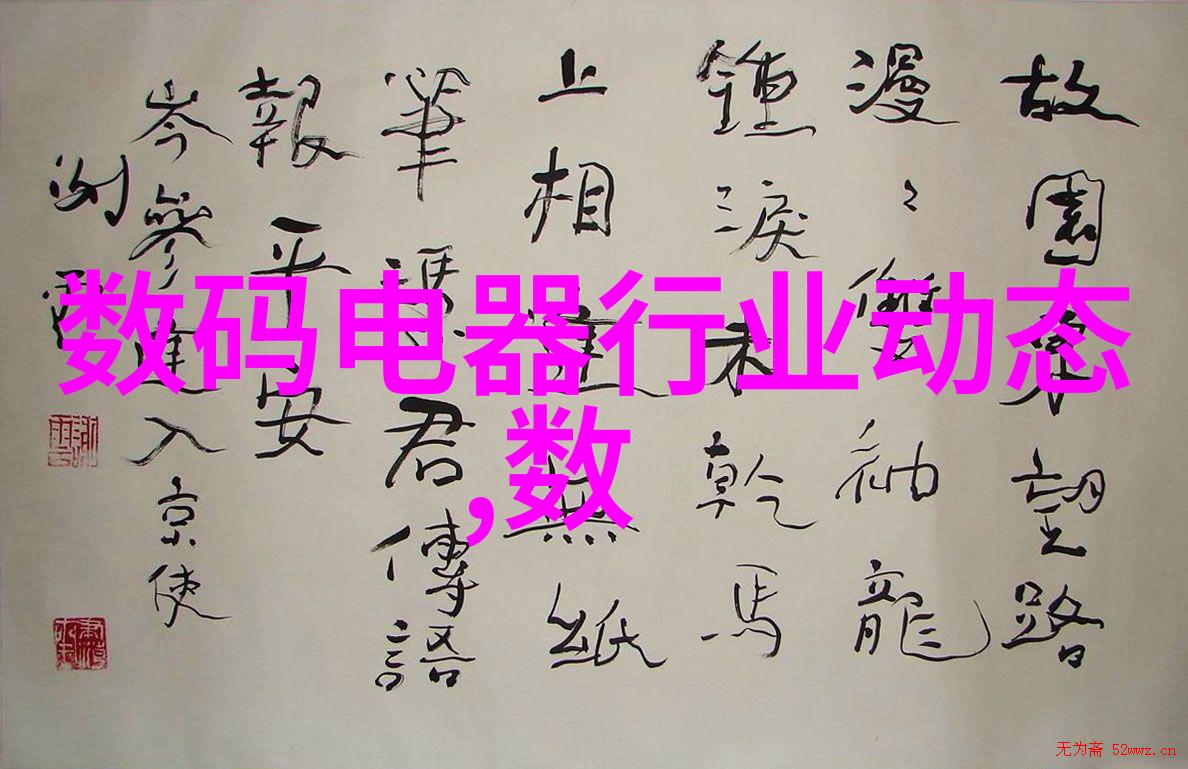 故園東望路
漫漫雙袖龍
鍾淚未乾馬
上相逢無紙
筆馮君傳語
報平安
岑參逢入京使
数码电器行业动态
,数
无为斋 52wwz.cn